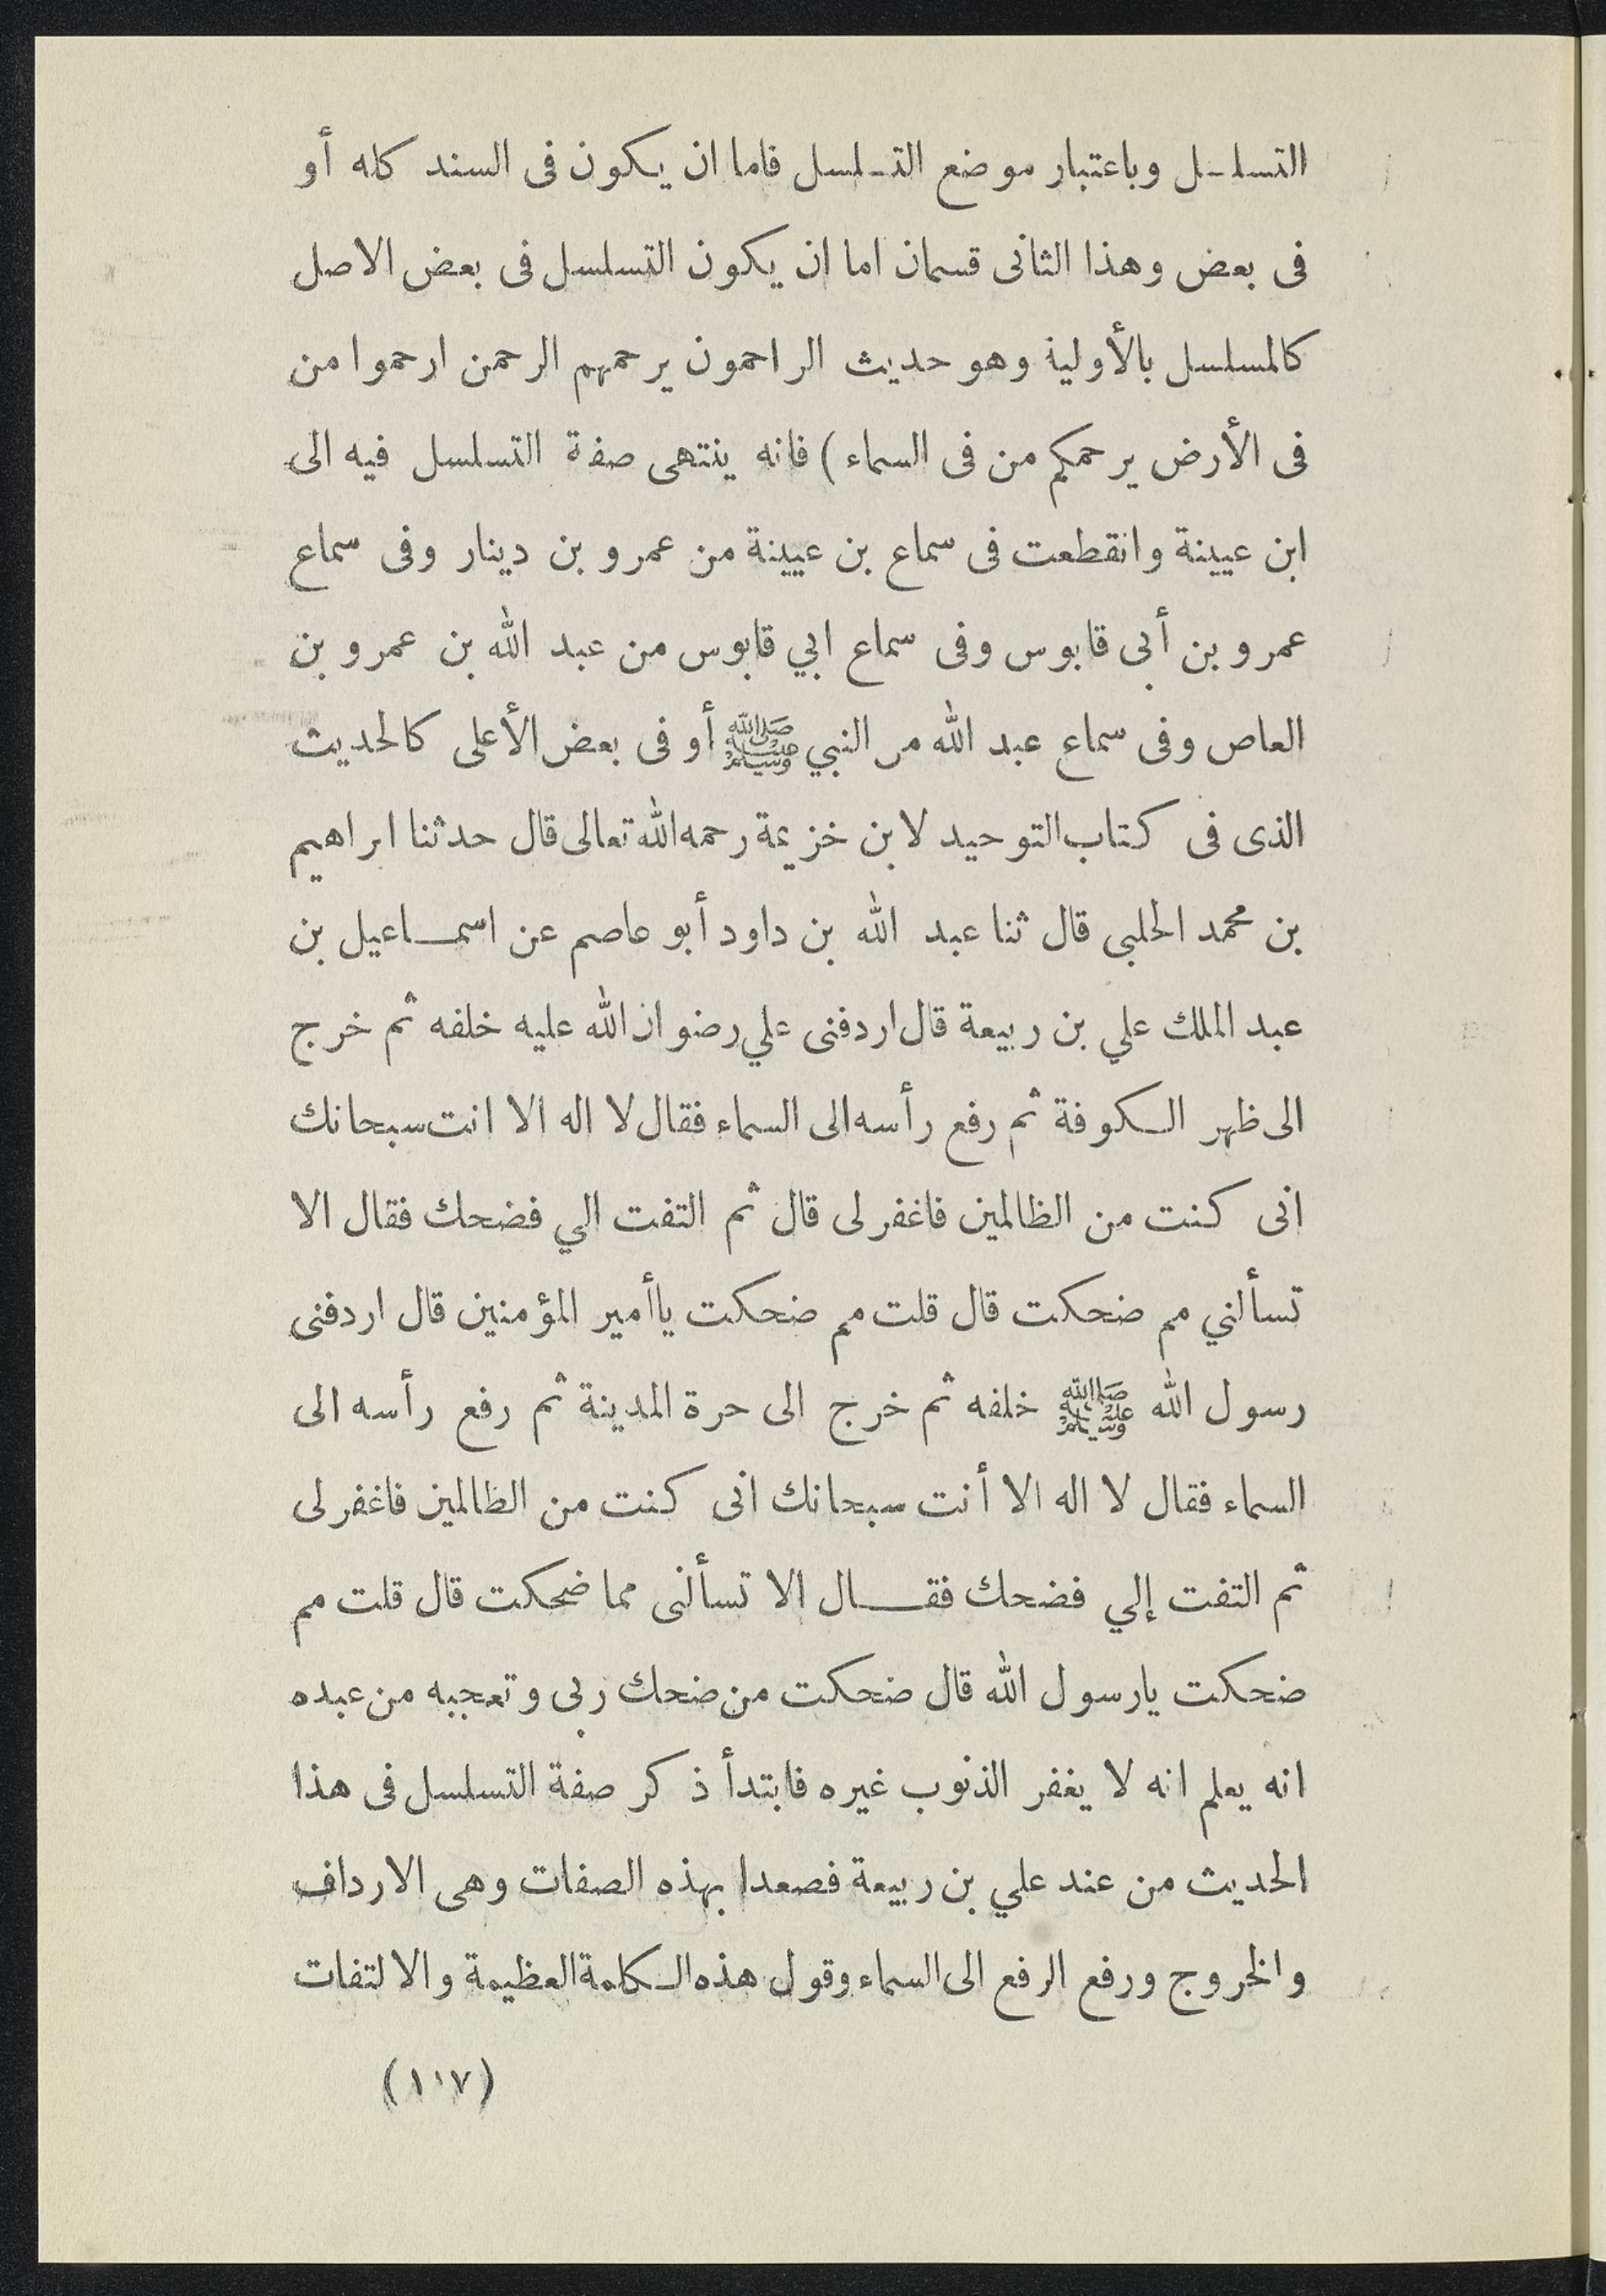 التسلسل وباعتبار موضع التسلسل فاما ان يكون فى السند كله أو
فى بعض وهذا الثانى قسمان اما ان يكون التسلسل فى بعض الاصل
كالمسلسل بالأولية وهو حديث الراحمون يرحمهم الرحمن ارحموا من
فى الأرض يرحمكم من فى السماء) فانه ينتهى صفة التسلسل فيه الى
ابن عيينة وانقطعت فى سماع بن عيينة من عمرو بن دينار وفى سماع
عمرو بن أبى قابوس وفى سماع ابي قابوس من عبد الله بن عمرو بن
العاص وفى سماع عبد الله من النبي ﷺ أو فى بعض الأعلى كالحديث
الذى فى كتاب التوحيد لابن خزيمة رحمه الله تعالى قال حدثنا ابراهيم
بن محمد الحلبى قال ثنا عبد الله بن داود أبو عاصم عن اسماعيل بن
عبد الملك علي بن ربيعة قال اردفنى علي رضوان الله عليه خلفه ثم خرج
الى ظهر الكوفة ثم رفع رأسه الى السماء فقال لا اله الا انت سبحانك
انى كنت من الظالمين فاغفر لى قال ثم التفت الي فضحك فقال الا
تسألني مم ضحكت قال قلت مم ضحكت ياأمير المؤمنين قال اردفنى
رسول الله ﷺ خلفه ثم خرج الى حرة المدينة ثم رفع رأسه الى
السماء فقال لا اله الا أنت سبحانك انى كنت من الظالمين فاغفر لى
ثم التفت إلي فضحك فقال الا تسألنى مما ضحكت قال قلت مم
ضحكت يارسول الله قال ضحكت من ضحك ربى وتعجبه من عبده
انه يعلم انه لا يغفر الذنوب غيره فابتدأ ذكر صفة التسلسل فى هذا
الحديث من عند علي بن ربيعة فصعدا بهذه الصفات وهى الارداف
والخروج ورفع الرفع الى السماء وقول هذه الكلمة العظيمة والالتفات
(١٠٧)